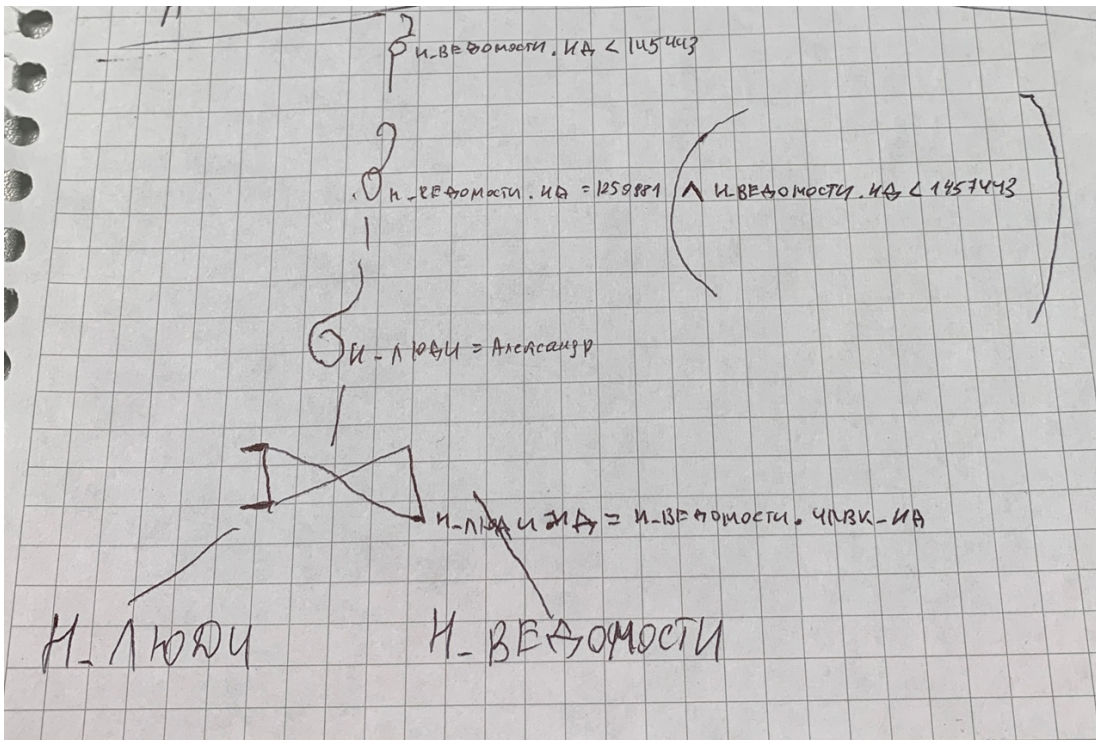 Н_ВЕДОМОСТИ.ИД < 145443
Н_ВЕДОМОСТИ.ИД = 1259881 ( ∧ Н_ВЕДОМОСТИ.ИД < 1457443 )
Н_ЛЮДИ = Александр
Н_ЛЮДИ.ИД = Н_ВЕДОМОСТИ.ЧЛВК_ИД
Н_ЛЮДИ Н_ВЕДОМОСТИ